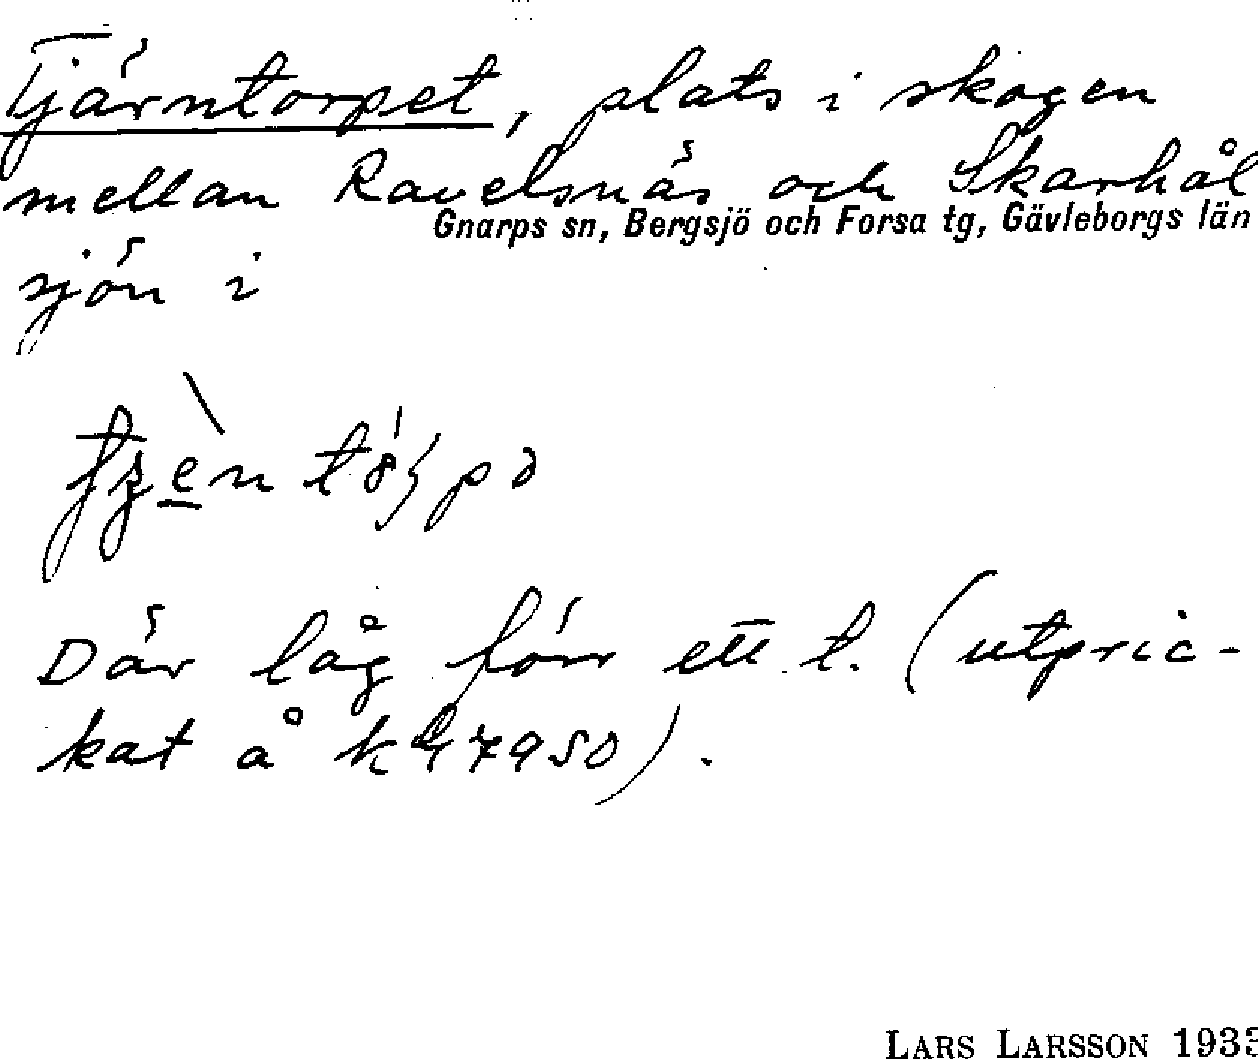 Tjärntorpet, plats i skogen
mellan Ravelsnäs och Skarhål
Gnarps sn, Bergsjö och Forsa tg, Gävleborgs län
sjön i
Där låg förr ett t. (utpric-
kat å
LARS LARSSON